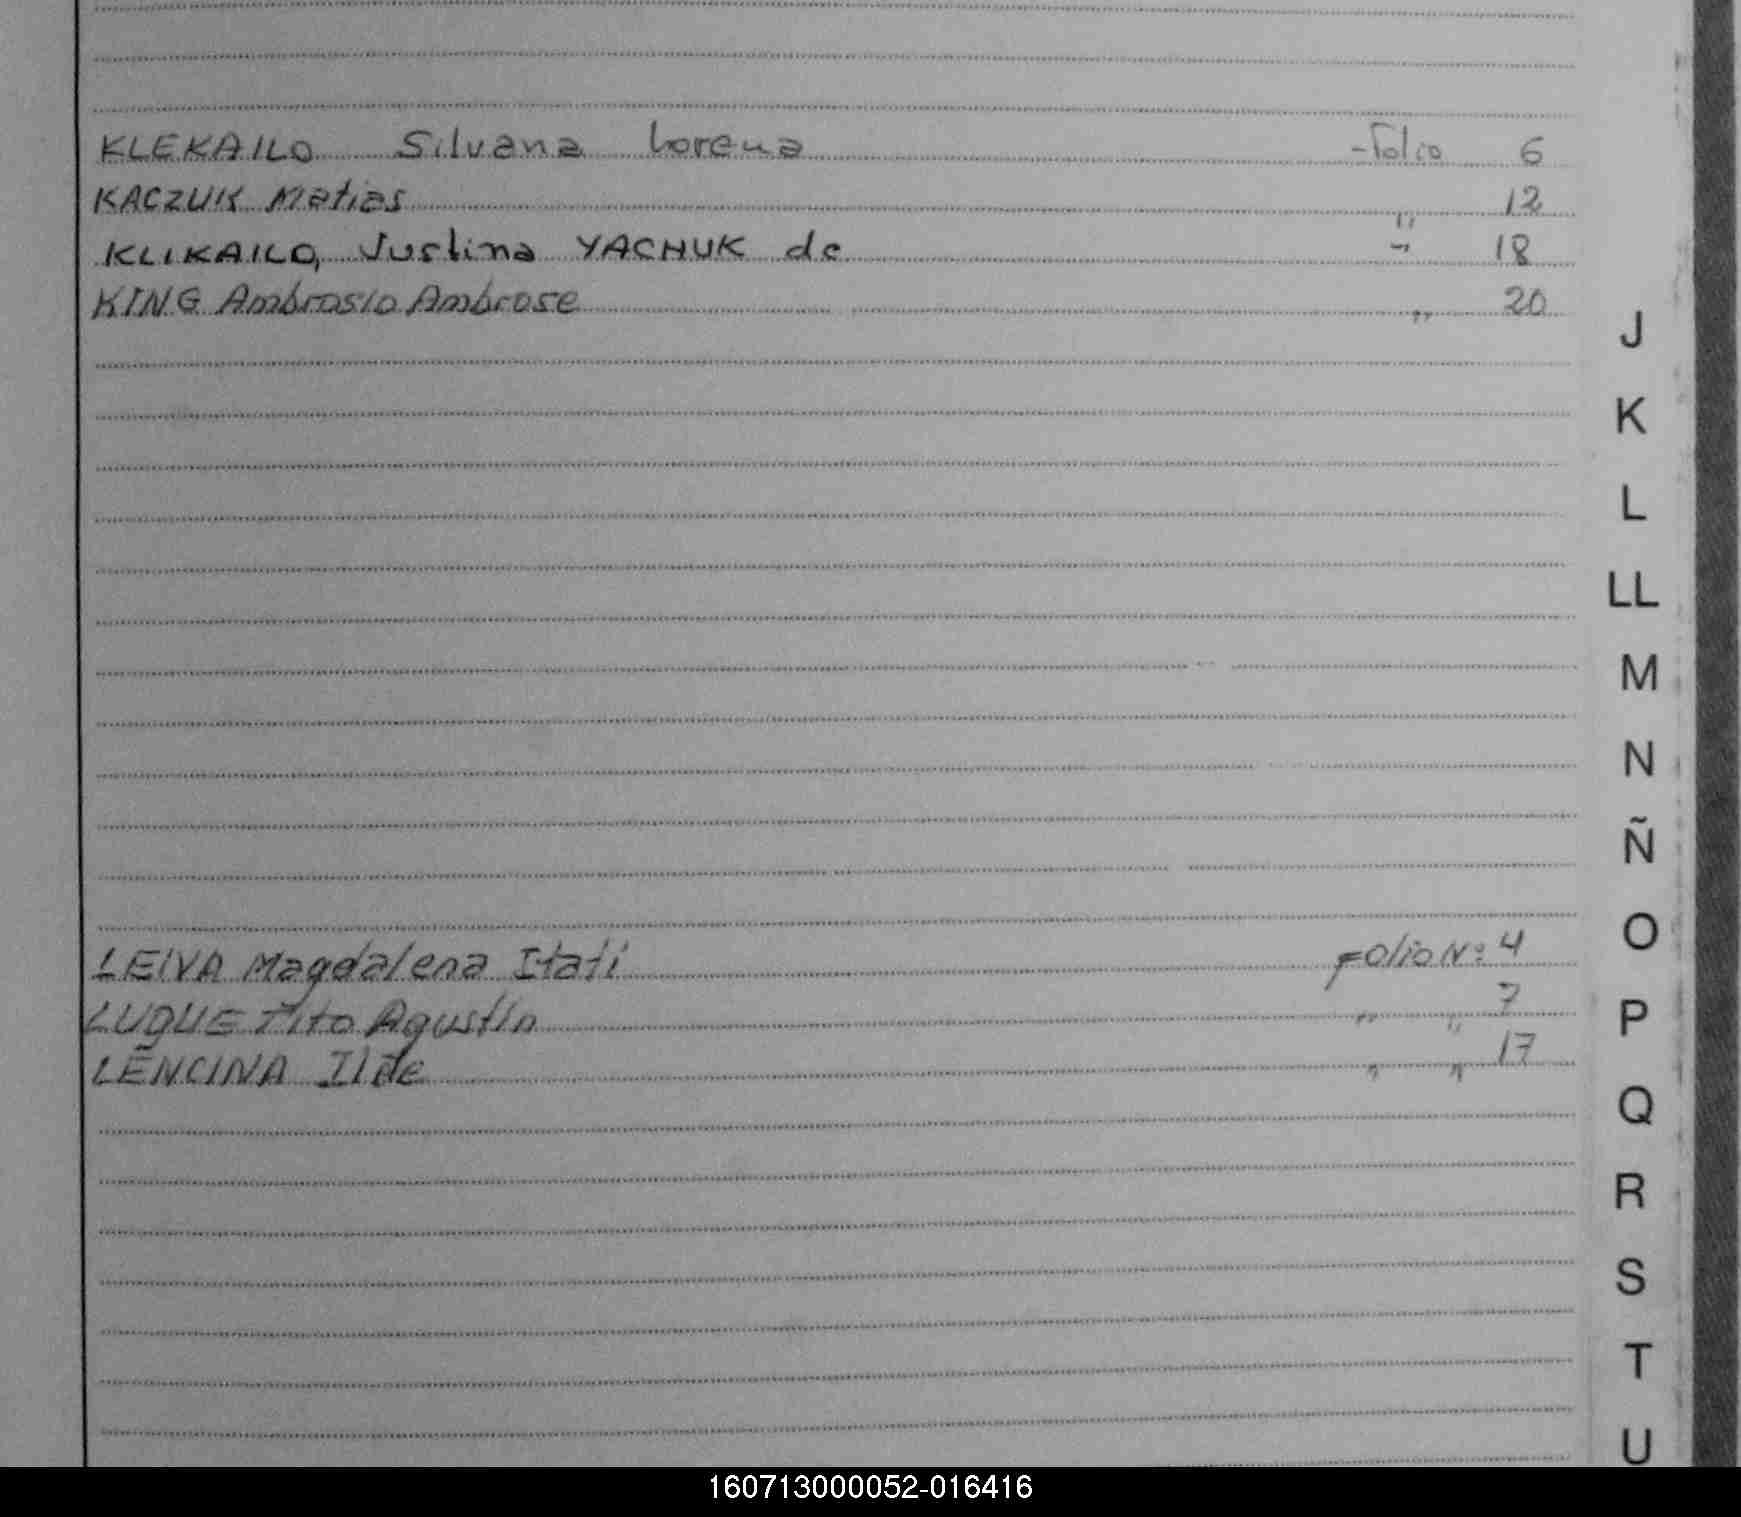 KLEKAILO Silvana Lorena -folio 6
KACZUK Matias " 12
KLIKAILO, Justina YACHUK de " 18
KING Ambrosio Ambrose " 20
J
K
L
LL
M
N
Ñ
O
LEIVA Magdalena Itati Folio Nº 4
LUQUE Tito Agustín " " 7
P
LENCINA Ilde " " 17
Q
R
S
T
U
160713000052-016416